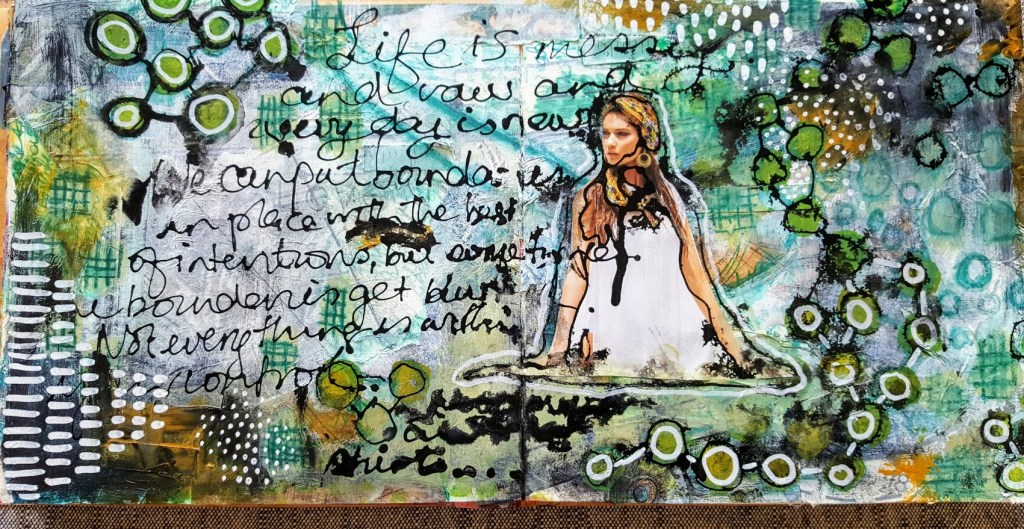 Life is messy
and raw and
every day is new
We can put boundaries
in place with the best
of intentions, but sometimes
boundaries get blurry
Not everything is within
control